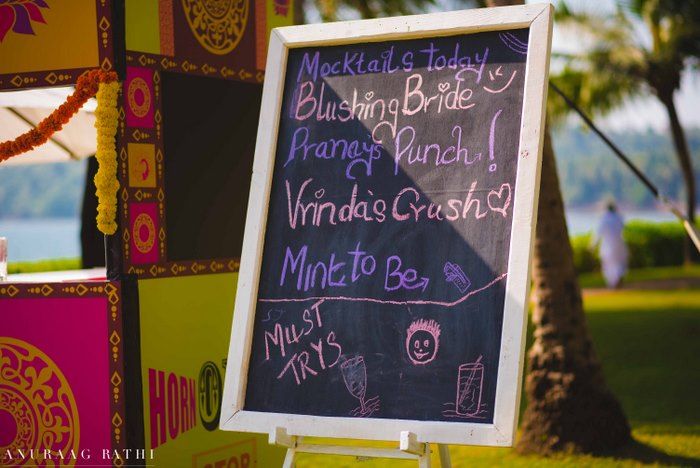 Mocktails today
Blushing Bride
Pranay's Punch!
Vrinda's Crush
Mint to Be
MUST
TRYS
HORN
ANURAAG RATHI